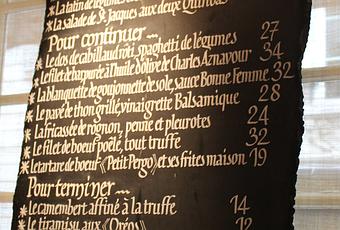 La tatin de légumes d
La salade de St. Jacques aux deux Quinoas
Pour continuer ~~
Le dos de cabillaud rôti, spaghetti de légumes 27
Le filet de bar purée à l'huile d'olive de Charles Aznavour 34
La blanquette de goujonnette de sole, sauce Bonne Femme 32
Le pavé de thon grillé, vinaigrette Balsamique 28
La fricassée de rognon, penne et pleurotes 24
Le filet de boeuf poêlé, tout truffe 32
Le tartare de boeuf "Petit Pergo" et ses frites maison 19
Pour terminer ~~
Le camembert affiné à la truffe 14
Le tiramisu aux "Oréos" 12